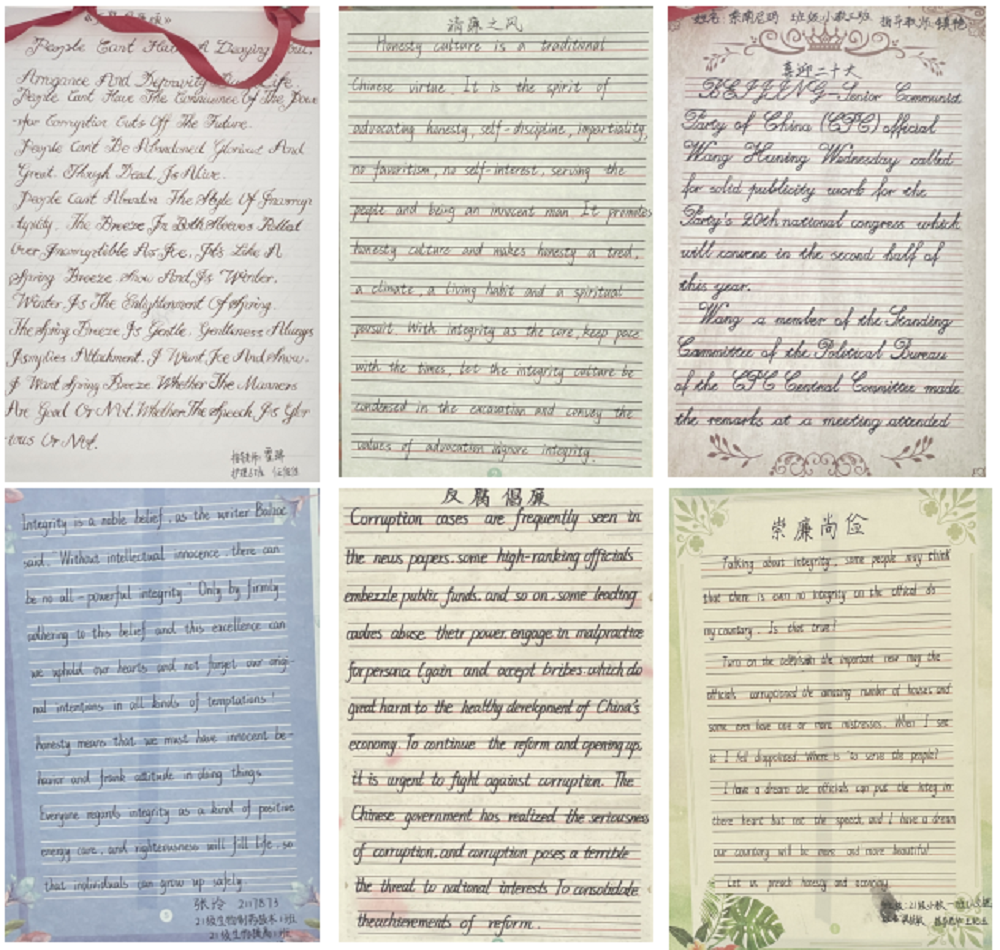 People Cant Have A Decaying
Arrogance And Depravity Life.
People Cant Have The Of The
-for Corruption Cuts Off The Future.
People Can't Be Abandoned Glorious And
Great. Though Dead, Is Alive.
People Cant Abandon The Style Of
-tigity. The Breeze In Both Sleeves Rolled
Over Incorruptible As Ice, It's Like A
Spring Breeze Snow And Is Winter.
Winter Is The Enlightenment Of Spring.
The Spring Breeze Is Gentle. Gentleness Always
Attachment. I Want Ice And Snow.
I Want Spring Breeze Whether The Manners
Are Good Or Not. Whether The Speech Is Glor
-ious Or Not.
清廉之风
Honesty culture is a traditional
Chinese virtue. It is the spirit of
advocating honesty, self-discipline, impartiality,
no favoritism, no self-interest, serving the
people and being an innocent man. It promotes
honesty culture and makes honesty a tred,
a climate, a living habit and a spiritual
pursuit. With integrity as the core, keep pace
with the times, let the integrity culture be
condensed in the excavation and convey the
values of advocation integrity.
班级:小教三班
喜迎二十大
BEIJING-Senior Communist
Party of China (CPC) official
Wang Huning Wednesday called
for solid publicity work for the
Party's 20th national congress which
will convene in the second half of
this year.
Wang a member of the Standing
Committee of the Political Bureau
of the CPC Central Committee made
the remarks at a meeting attended
Integrity is a noble belief, as the writer Balzac
said. "Without intellectual innocence, there can
be no all-powerful integrity" Only by firmly
adhering to this belief and this excellence can
we uphold our hearts and not forget our origi-
nal intentions in all kinds of temptations!
honesty means that we must have innocent be-
havior and frank attitude in doing things
Everyone regards integrity as a kind of positive
energy care, and righteousness will fill life, so
that individuals can grow up safely
张玲 2117873
21级生物制药技术1班
反腐倡廉
Corruption cases are frequently seen in
the news papers. some high-ranking officials
embezzle public funds. and so on. some leading
cadres abuse their power. engage in malpractice
for persona lgain and accept bribes. which do
great harm to the healthy development of China's
economy. To continue the reform and opening up,
it is urgent to fight against corruption. The
Chinese government has realized the seriousness
of corruption. and corruption poses a terrible
the threat to national interests To consolidate
theachievements of reform.
崇廉尚俭
Talking about integrity, some people may think
that there is even no integrity on the offical do
my country. Is that true?
Turn on the the important new may the
officials corruptioned the amazing number of houses and
some even have one or more mistresses. When I see
it I fell disappoined. Where is "to serve the people?
I have a dream the officials can put the integ in
there heart but not the speech, and I have a dream
our countary will be more and more beautiful!
Let us preach honesty and economy